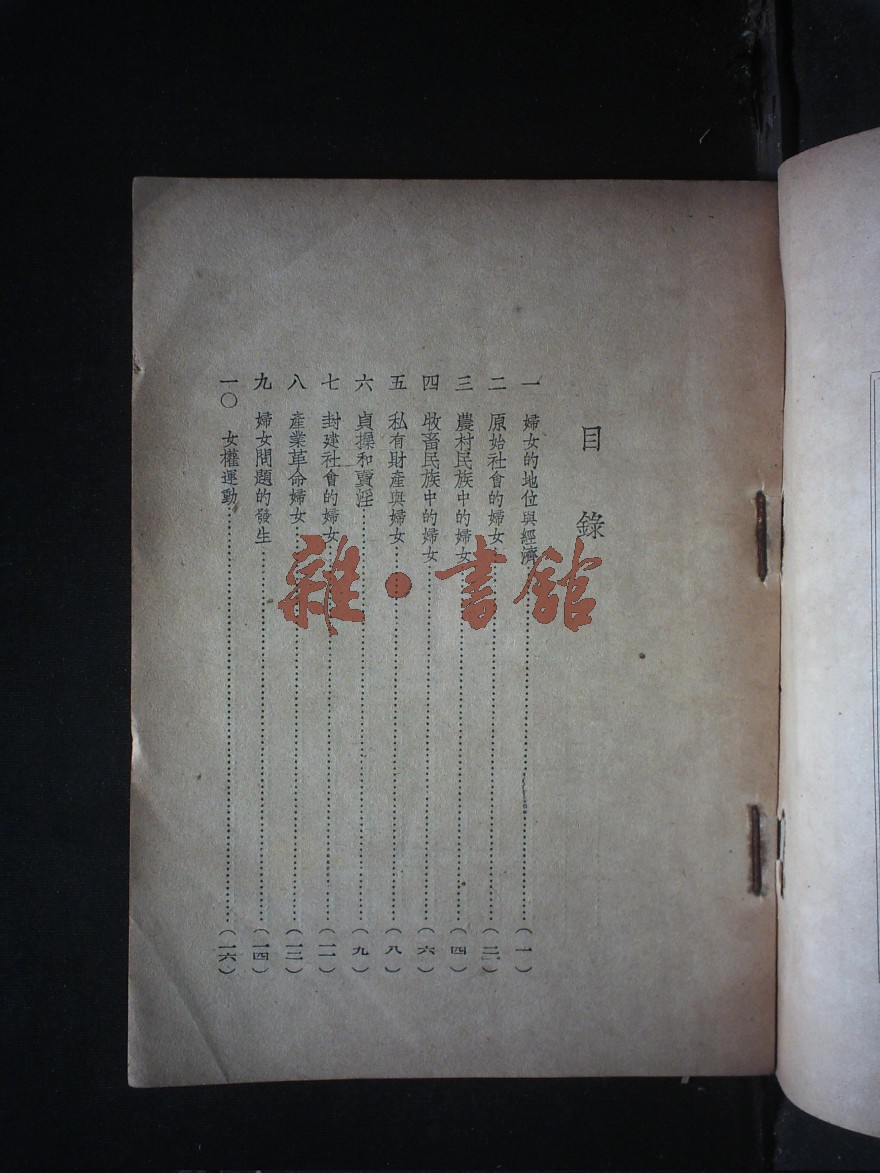 目錄
一 婦女的地位與經濟……(一)
二 原始社會的婦女……(二)
三 農村民族中的婦女……(四)
四 牧畜民族中的婦女……(六)
五 私有財產與婦女……(八)
六 貞操和賣淫……(九)
七 封建社會的婦女……(一一)
八 產業革命婦女……(一二)
九 婦女問題的發生……(一四)
一〇 女權運動……(一六)
雜·書館